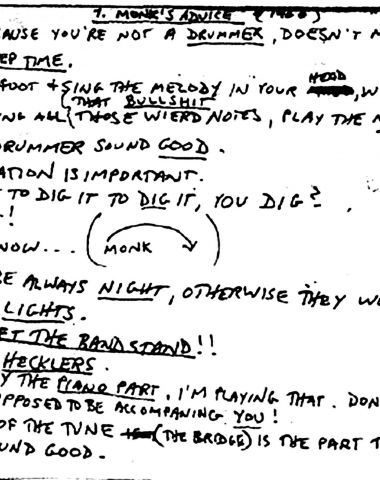 T. MONK'S ADVICE (1960)
CAUSE YOU'RE NOT A DRUMMER, DOESN'T
EEP TIME.
FOOT + SING THE MELODY IN YOUR HEAD, W
THAT BULLSHIT
ING ALL THOSE WIERD NOTES, PLAY THE M
DRUMMER SOUND GOOD.
ATION IS IMPORTANT.
T TO DIG IT TO DIG IT, YOU DIG?
!
NOW... (MONK)
BE ALWAYS NIGHT, OTHERWISE THEY WO
LIGHTS.
ET THE BANDSTAND!!
HECKLERS.
Y THE PIANO PART, I'M PLAYING THAT. DON
PPOSED TO BE ACCOMPANING YOU!
OF THE TUNE (THE BRIDGE) IS THE PART T
UND GOOD.